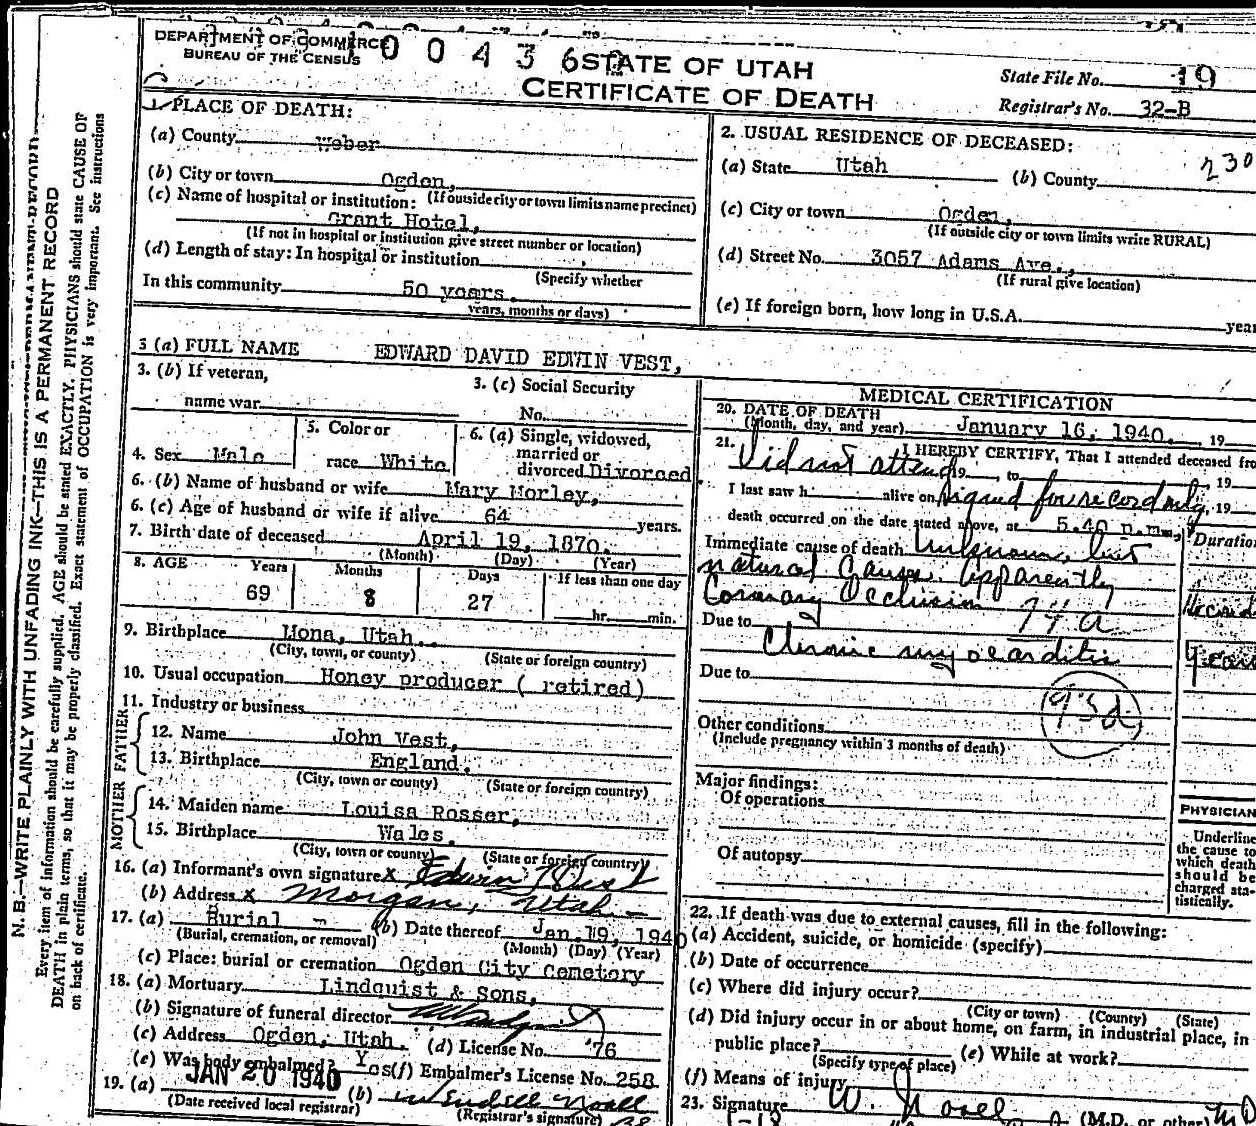 DEPARTMENT OF COMMERCE
BUREAU OF THE CENSUS
0 0 4 3 6
STATE OF UTAH
CERTIFICATE OF DEATH
State File No. 19
Registrar's No. 32-B
1. PLACE OF DEATH:
(a) County Weber
(b) City or town Ogden,
(If outside city or town limits name precinct)
(c) Name of hospital or institution:
Grant Hotel,
(If not in hospital or institution give street number or location)
(d) Length of stay: In hospital or institution
(Specify whether
In this community 50 years.
years, months or days)
2. USUAL RESIDENCE OF DECEASED:
230
(a) State Utah (b) County
(c) City or town Ogden,
(If outside city or town limits write RURAL)
(d) Street No. 3057 Adams Ave.,
(If rural give location)
(e) If foreign born, how long in U.S.A. year
3 (a) FULL NAME EDWARD DAVID EDWIN VEST,
3. (b) If veteran,
name war
3. (c) Social Security
No.
4. Sex Male
5. Color or
race White
6. (a) Single, widowed,
married or
divorced Divorced
6. (b) Name of husband or wife Mary Morley,
6. (c) Age of husband or wife if alive 64 years.
7. Birth date of deceased April 19, 1870.
(Month) (Day) (Year)
8. AGE Years Months Days If less than one day
69 8 27 hr. min.
9. Birthplace Mona, Utah.
(City, town, or county) (State or foreign country)
10. Usual occupation Honey producer ( retired)
11. Industry or business
FATHER
12. Name John Vest,
13. Birthplace England.
(City, town or county) (State or foreign country)
MOTHER
14. Maiden name Louisa Rosser,
15. Birthplace Wales.
(City, town or county) (State or foreign country)
16. (a) Informant's own signature x Edwin Vest
(b) Address x Morgan, Utah
17. (a) Burial (b) Date thereof Jan. 19, 1940
(Burial, cremation, or removal) (Month) (Day) (Year)
(c) Place: burial or cremation Ogden City Cemetery
18. (a) Mortuary Lindquist & Sons,
(b) Signature of funeral director
(c) Address Ogden, Utah. (d) License No. 76
(e) Was body embalmed? Yes (f) Embalmer's License No. 258
19. (a) JAN 20 1940 (b) Wendell Noall
(Date received local registrar) (Registrar's signature)
MEDICAL CERTIFICATION
20. DATE OF DEATH
(Month, day, and year) January 16, 1940. , 19
21. I HEREBY CERTIFY, That I attended deceased from
Did not attend 19 , to , 19
I last saw h alive on Signed for record only, 19
death occurred on the date stated above, at 5.40 p.m.
Duration
Immediate cause of death Unknown, but
natural cause. Apparently
Coronary Occlusion
Due to 94a
Chronic myocarditis
Due to
93d
Other conditions
(Include pregnancy within 3 months of death)
Major findings:
Of operations
Of autopsy
PHYSICIAN
Underline
the cause to
which death
should be
charged sta-
tistically.
22. If death was due to external causes, fill in the following:
(a) Accident, suicide, or homicide (specify)
(b) Date of occurrence
(c) Where did injury occur?
(City or town) (County) (State)
(d) Did injury occur in or about home, on farm, in industrial place, in
public place? (e) While at work?
(Specify type of place)
(f) Means of injury
23. Signature W. Noall (M.D. or other) MD
N. B.—WRITE PLAINLY WITH UNFADING INK—THIS IS A PERMANENT RECORD
Every item of information should be carefully supplied. AGE should be stated EXACTLY. PHYSICIANS should state CAUSE OF
DEATH in plain terms, so that it may be properly classified. Exact statement of OCCUPATION is very important. See instructions
on back of certificate.